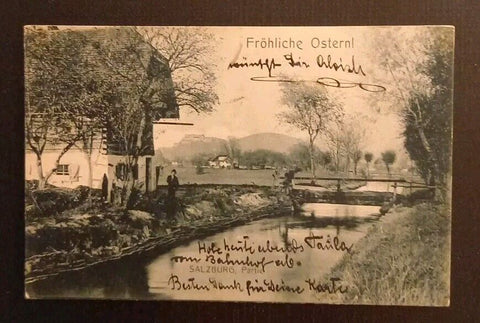 Fröhliche Ostern!
wünscht Dir Aloisl
Hole heute abends Paula
vom Bahnhof ab.
SALZBURG, Partie
Besten Dank für Deine Karte